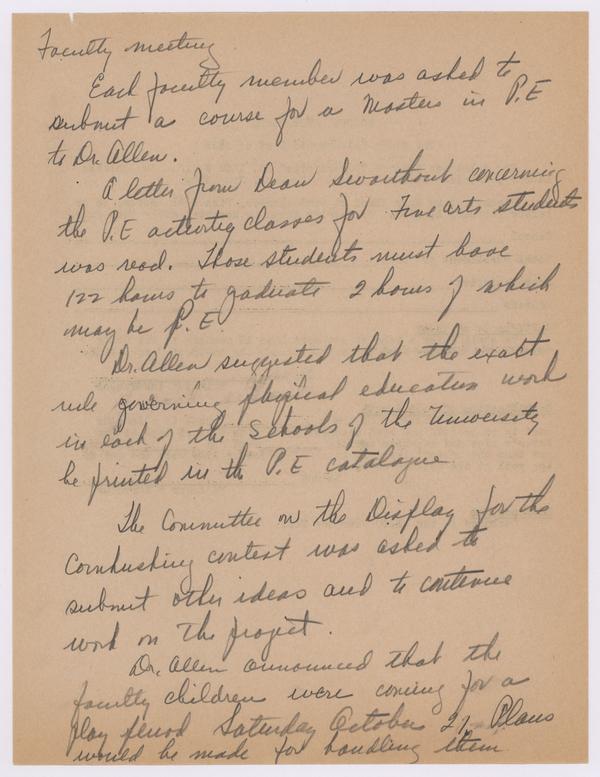 Faculty meeting
Each faculty member was asked to
submit a course for a Masters in P.E
to Dr. Allen.
A letter from Dean Swarthout concerning
the P.E activity classes for Fine arts students
was read. Those students must have
122 hours to graduate 2 hours of which
may be P.E.
Dr. Allen suggested that the exact
rule governing physical education work
in each of the Schools of the University
be printed in the P.E catalogue
The Committee on the Display for the
Cornhusking contest was asked to
submit other ideas and to continue
work on the project.
Dr. Allen announced that the
faculty children were coming for a
play period Saturday October 21. Plans
would be made for handling them